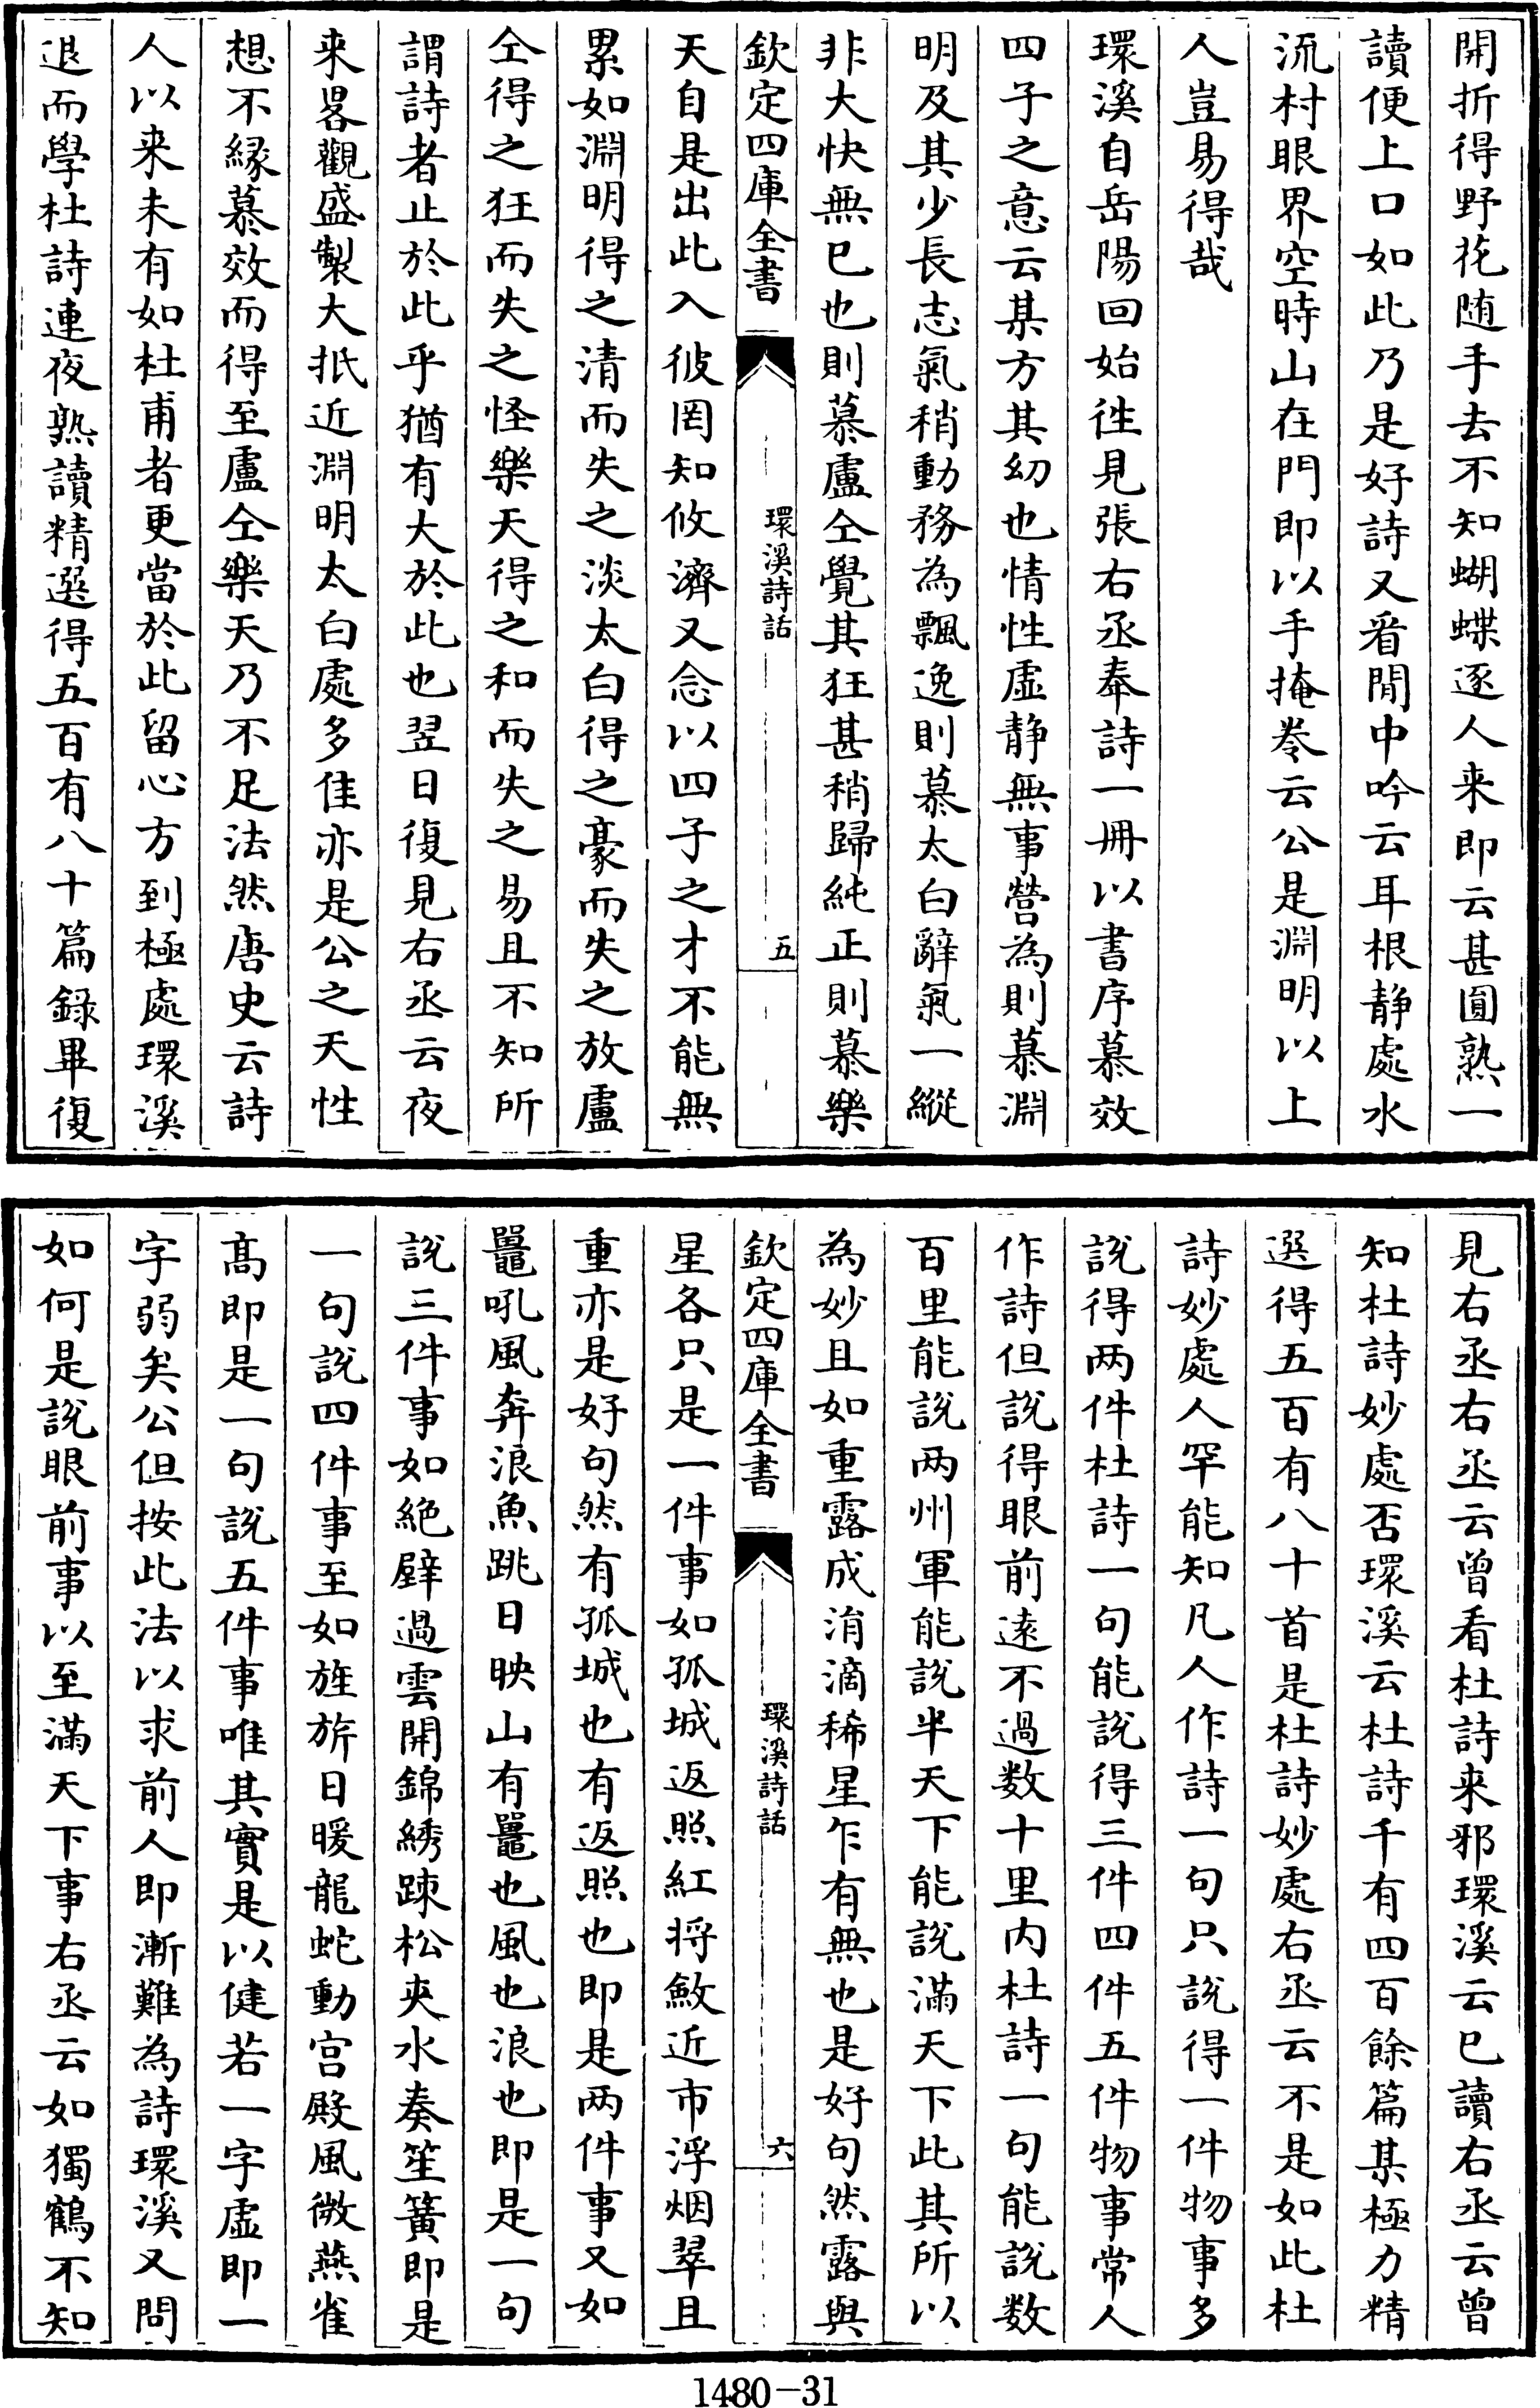 開折得野花随手去不知蝴蝶逐人来即云甚圓熟一
讀便上口如此乃是好詩又看閒中吟云耳根静處水
流村眼界空時山在門即以手掩卷云公是淵明以上
人豈易得哉
環溪自岳陽回始徃見張右丞奉詩一冊以書序慕效
四子之意云某方其幼也情性虚静無事營為則慕淵
明及其少長志氣稍動務為飄逸則慕太白辭氣一縱
非大快無已也則慕盧仝覺其狂甚稍歸純正則慕樂
欽定四庫全書
環溪詩話
五
天自是出此入彼罔知攸濟又念以四子之才不能無
累如淵明得之清而失之淡太白得之豪而失之放盧
仝得之狂而失之怪樂天得之和而失之易且不知所
謂詩者止於此乎猶有大於此也翌日復見右丞云夜
来畧觀盛製大抵近淵明太白處多佳亦是公之天性
想不縁慕效而得至盧仝樂天乃不足法然唐史云詩
人以来未有如杜甫者更當於此留心方到極處環溪
退而學杜詩連夜熟讀精選得五百有八十篇録畢復
見右丞右丞云曾看杜詩来邪環溪云已讀右丞云曾
知杜詩妙處否環溪云杜詩千有四百餘篇某極力精
選得五百有八十首是杜詩妙處右丞云不是如此杜
詩妙處人罕能知凡人作詩一句只說得一件物事多
說得两件杜詩一句能說得三件四件五件物事常人
作詩但說得眼前逺不過数十里内杜詩一句能說数
百里能說两州軍能說半天下能說滿天下此其所以
為妙且如重露成涓滴稀星乍有無也是好句然露與
欽定四庫全書
環溪詩話
六
星各只是一件事如孤城返照紅将斂近市浮烟翠且
重亦是好句然有孤城也有返照也即是两件事又如
鼉吼風奔浪魚跳日映山有鼉也風也浪也即是一句
說三件事如絶壁過雲開錦綉踈松夾水奏笙簧即是
一句說四件事至如旌旂日暖龍蛇動宫殿風微燕雀
髙即是一句說五件事唯其實是以健若一字虚即一
字弱矣公但按此法以求前人即漸難為詩環溪又問
如何是說眼前事以至滿天下事右丞云如獨鶴不知
1480-31